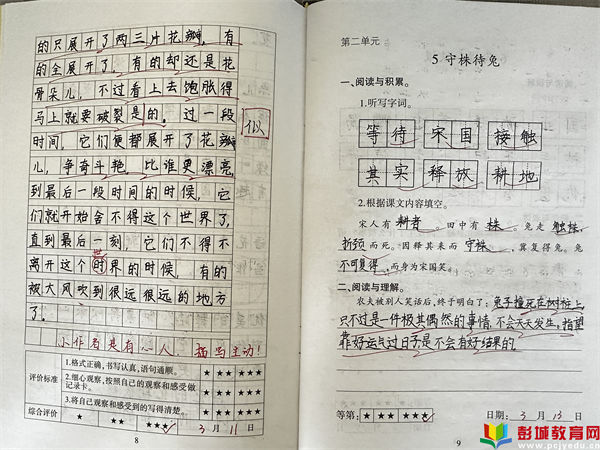 的只展开了两三片花瓣，有
的全展开了。有的却还是花
骨朵儿，不过看上去饱胀得
马上就要破裂是的。过一段
似
时间，它们便都展开了花瓣
儿，争奇斗艳，比谁更漂亮，
到最后一段时间的时候，它
们就开始舍不得这个世界了，
直到最后一刻，它们不得不
离开这个世界的时候，有的
被大风吹到很远很远的地方
了。
小作者是有心人，描写生动！
评价标准
1.格式正确，书写认真，语句通顺。
2.细心观察，按照自己的观察和感受做
记录卡。
3.将自己观察和感受到的写得清楚。
综合评价
★ ★★ ★★★ 3月11日
8
第二单元
5 守株待兔
一、阅读与积累。
1.听写字词。
等待 宋国 接触
其实 释放 耕地
2.根据课文内容填空。
宋人有耕者。田中有株。兔走触株，
折颈而死。因释其耒而守株，冀复得兔。兔
不可复得，而身为宋国笑。
二、阅读与理解。
农夫被别人笑话后，终于明白了：兔子撞死在树桩上，
只不过是一件极其偶然的事情，不会天天发生，指望
靠好运气过日子是不会有好结果的。
等第：★ ★★ ★★★ ★★★★ 日期：3月13日
9
彭城教育网
www.pcjyedu.cn